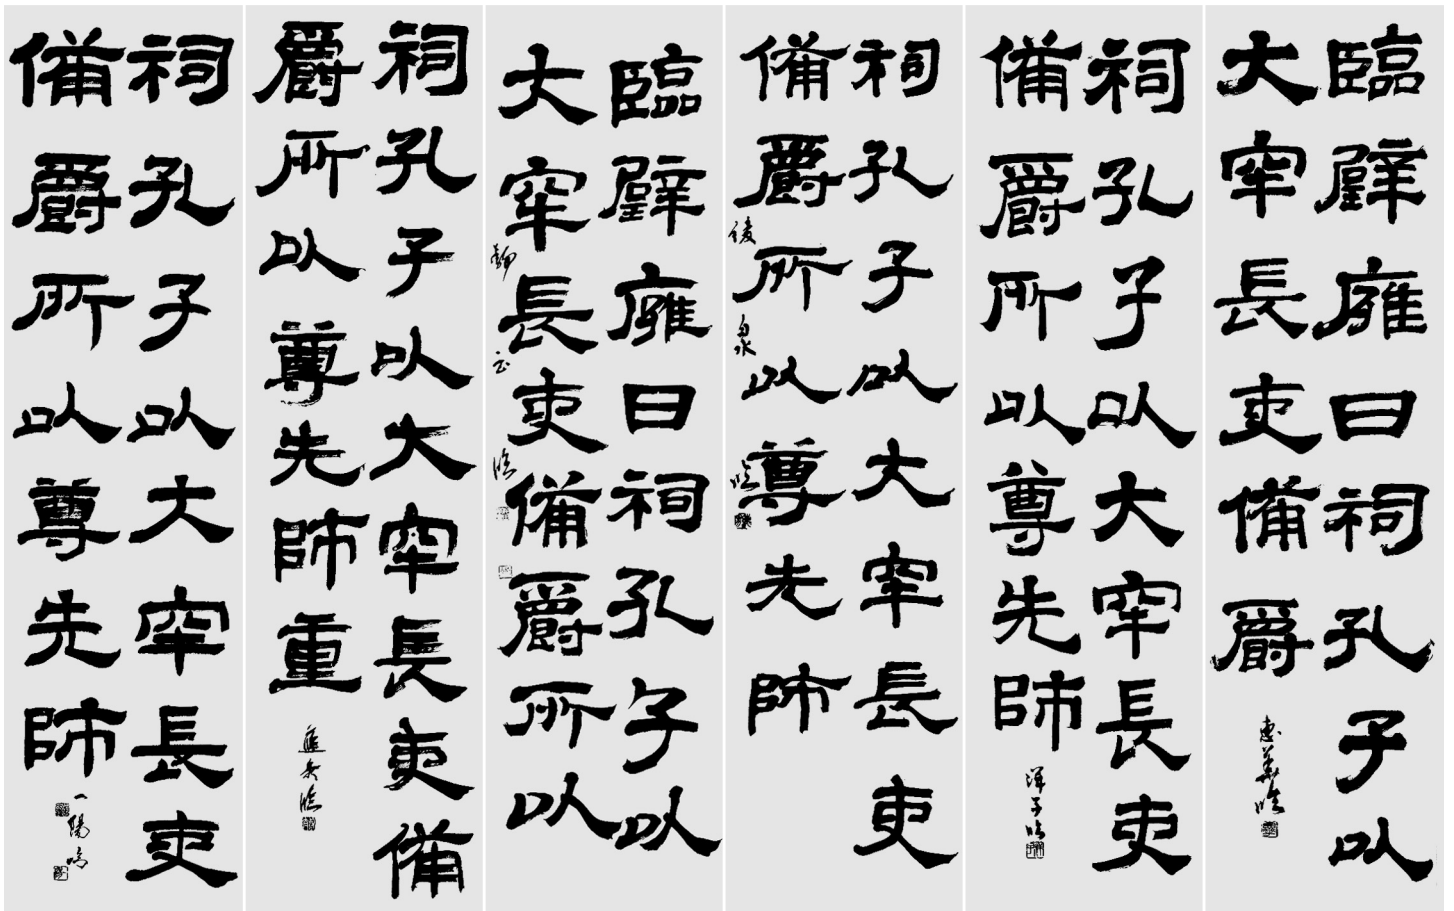 臨辟廱日祠孔子以
大牢長吏備爵
祠孔子以大牢長吏
備爵所以尊先師
祠孔子以大牢長吏
備爵所以尊先師
臨辟廱日祠孔子以
大牢長吏備爵所以
祠孔子以大牢長吏備
爵所以尊先師重
祠孔子以大牢長吏
備爵所以尊先師
一陽临